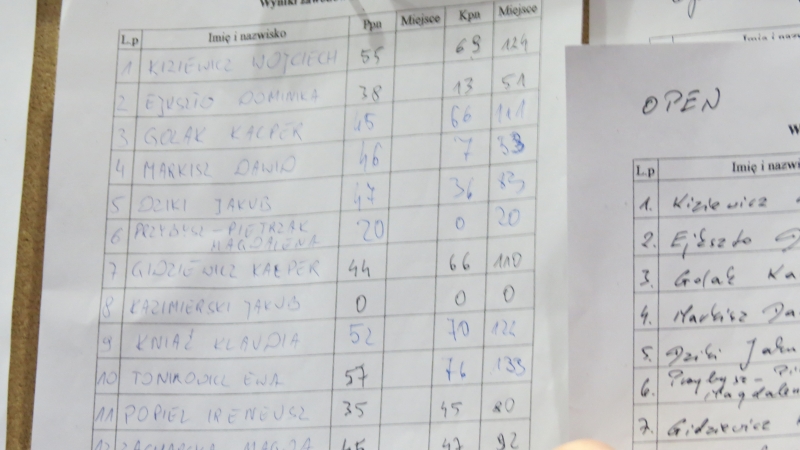 Wyniki
L.p Imię i nazwisko Ppn Miejsce Kpn Miejsce
1 KIZIEWICZ WOJCIECH 55 69 124
2 EJUSZTO DOMINIKA 38 13 51
3 GOLAK KACPER 45 66 111
4 MARKISZ DAWID 46 7
5 DZIKI JAKUB 47 36 83
6 PRZYBYSZ - PIETRZAK MAGDALENA 20 0 20
7 GIDZIEWICZ KACPER 44 66 110
8 KAZIMIERSKI JAKUB 0 0 0
9 KNIAŹ KLAUDIA 52 70 122
10 EWA 57 76 133
11 POPIEL IRENEUSZ 35 45 80
12 MAGDA 45 47 92
OPEN
L.p Imię i
1. Kiziewicz
2.
3. Golak Ka
4. Markisz Da
5. Dziki Jaku
6. Przybysz - Pi
Magdale
7. Gidziewicz